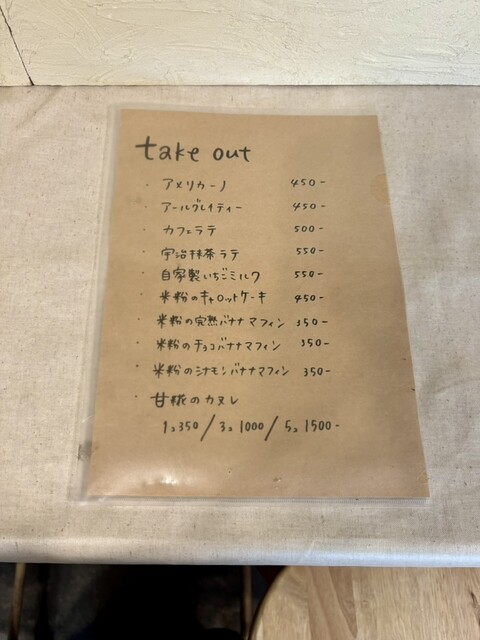 take out
・ アメリカーノ 450-
・ アールグレイティー 450-
・ カフェラテ 500-
・ 宇治抹茶ラテ 550-
・ 自家製いちごミルク 550-
・ 米粉のキャロットケーキ 450-
・ 米粉の完熟バナナマフィン 350-
・ 米粉のチョコバナナマフィン 350-
・ 米粉のシナモンバナナマフィン 350-
・ 甘糀のカヌレ
1コ350/3コ1000/5コ1500-